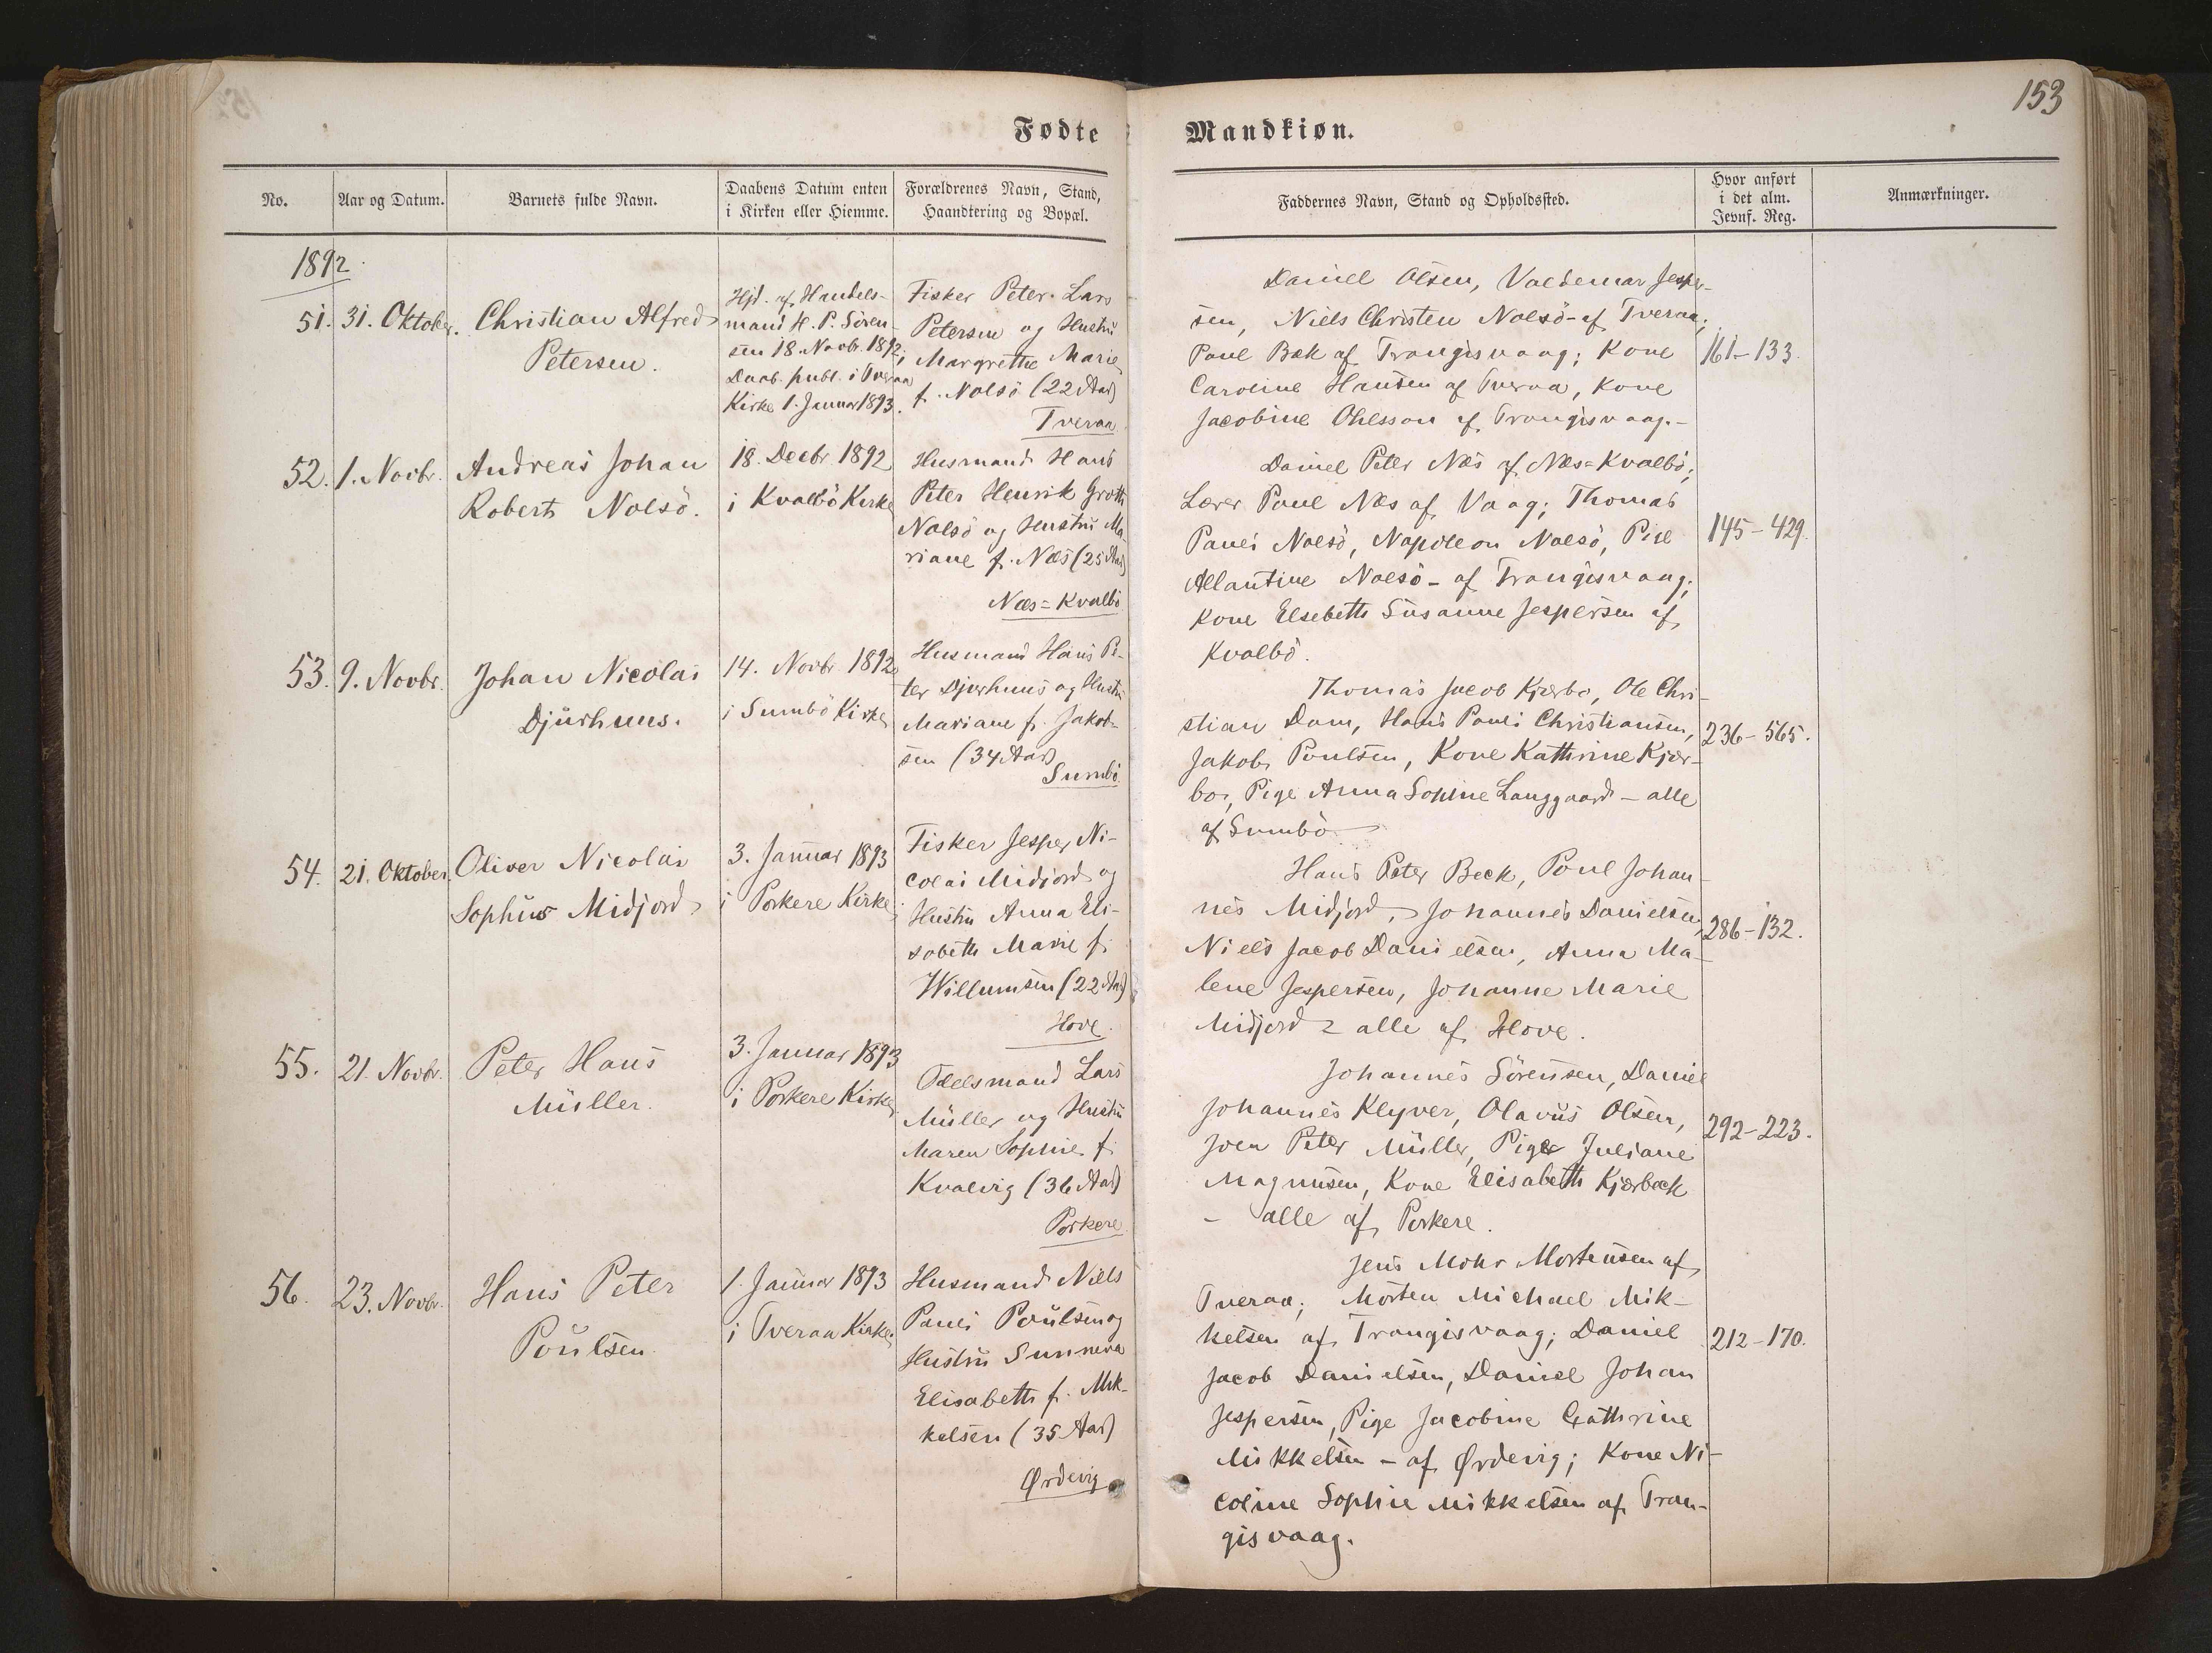 153
Fødte
Mandkiøn.
No.
Aar og Datum.
Barnets fulde Navn.
Daabens Datum enten
i Kirken eller Hiemme.
Forældrenes Navn, Stand,
Haandtering og Bopæl.
Faddernes Navn, Stand og Opholdssted.
Hvor anført
i det alm.
Jevnf. Reg.
Anmærkninger.
1892
51.
31. Oktober.
Christian Alfred
Petersen.
Hjd. af Handels-
mand H. P. Sören-
sen 18. Novb. 1892;
Daab. publ. i Tveraa
Kirke 1. Januar 1893.
Fisker Peter Lars
Petersen og Hustru
Margrethe Marie
f. Nolsö (22 Aar)
Tveraa
Daniel Olsen, Valdemar Jesper-
sen, Niels Christen Nolsö - af Tveraa;
Poul Bæk af Trangisvaag; Kone
Caroline Hansen af Tveraa, Kone
Jacobine Ohlsson af Trangisvaag.-
161-133.
52.
1. Novbr.
Andreas Johan
Robert Nolsö.
18. Decbr 1892
i Kvalbö Kirke
Husmand Hans
Peter Henrik Groth
Nolsö og Hustru Ma-
riane f. Næs (25 Aar)
Næs=Kvalbö
Daniel Peter Næs af Næs=Kvalbö;
Lærer Poul Næs af Vaag; Thomas
Pauli Nolsö, Napoleon Nolsö, Pige
Atlantine Nolsö - af Trangisvaag;
Kone Elsebeth Susanne Jespersen af
Kvalbö.
145-429.
53.
9. Novbr.
Johan Nicolai
Djurhuus.
14. Novbr 1892
i Sumbö Kirke
Husmand Hans Pe-
ter Djurhuus og Hustru
Mariane f. Jakob-
sen (34 Aar)
Sumbö
Thomas Jacob Kjærbo, Ole Chri-
stian Dam, Hans Pauli Christiansen,
Jakob Poulsen, Kone Kathrine Kjær-
bo, Pige Anna Sophie Langgaard - alle
af Sumbö
236-565.
54.
21. Oktober.
Oliver Nicolai
Sophus Midjord
3. Januar 1893
i Porkere Kirke
Fisker Jesper Ni-
colai Midjord og
Hustru Anna Eli-
sabeth Marie f.
Willumsen (22 Aar)
Hove.
Hans Peter Beck, Poul Johan-
nes Midjord, Johannes Danielsen,
Niels Jacob Danielsen, Anna Ma-
lene Jespersen, Johanne Marie
Midjord - alle af Hove.
286-132.
55.
21. Novbr.
Peter Hans
Müller.
3. Januar 1893
i Porkere Kirke
Odelsmand Lars
Müller og Hustru
Maren Sophie f.
Kvalvig (36 Aar)
Porkere
Johannes Sörensen, Daniel
Johannes Klyver, Olavus Olsen,
Joen Peter Müller, Pige Juliane
Magnusen, Kone Elisabeth Kjærbæk
- alle af Porkere.
292-223.
56.
23. Novbr.
Hans Peter
Poulsen
1. Januar 1893
i Tveraa Kirke.
Husmand Niels
Pauli Poulsen og
Hustru Sunneva
Elisabeth f. Mik-
kelsen (35 Aar)
Ørdevig
Jens Mohr Mortensen af
Tveraa; Morten Michael Mik-
kelsen af Trangisvaag; Daniel
Jacob Danielsen, Daniel Johan
Jespersen, Pige Jacobine Cathrine
Mikkelsen - af Ørdevig; Kone Ni-
coline Sophie Mikkelsen af Tran-
gisvaag.
212-170.